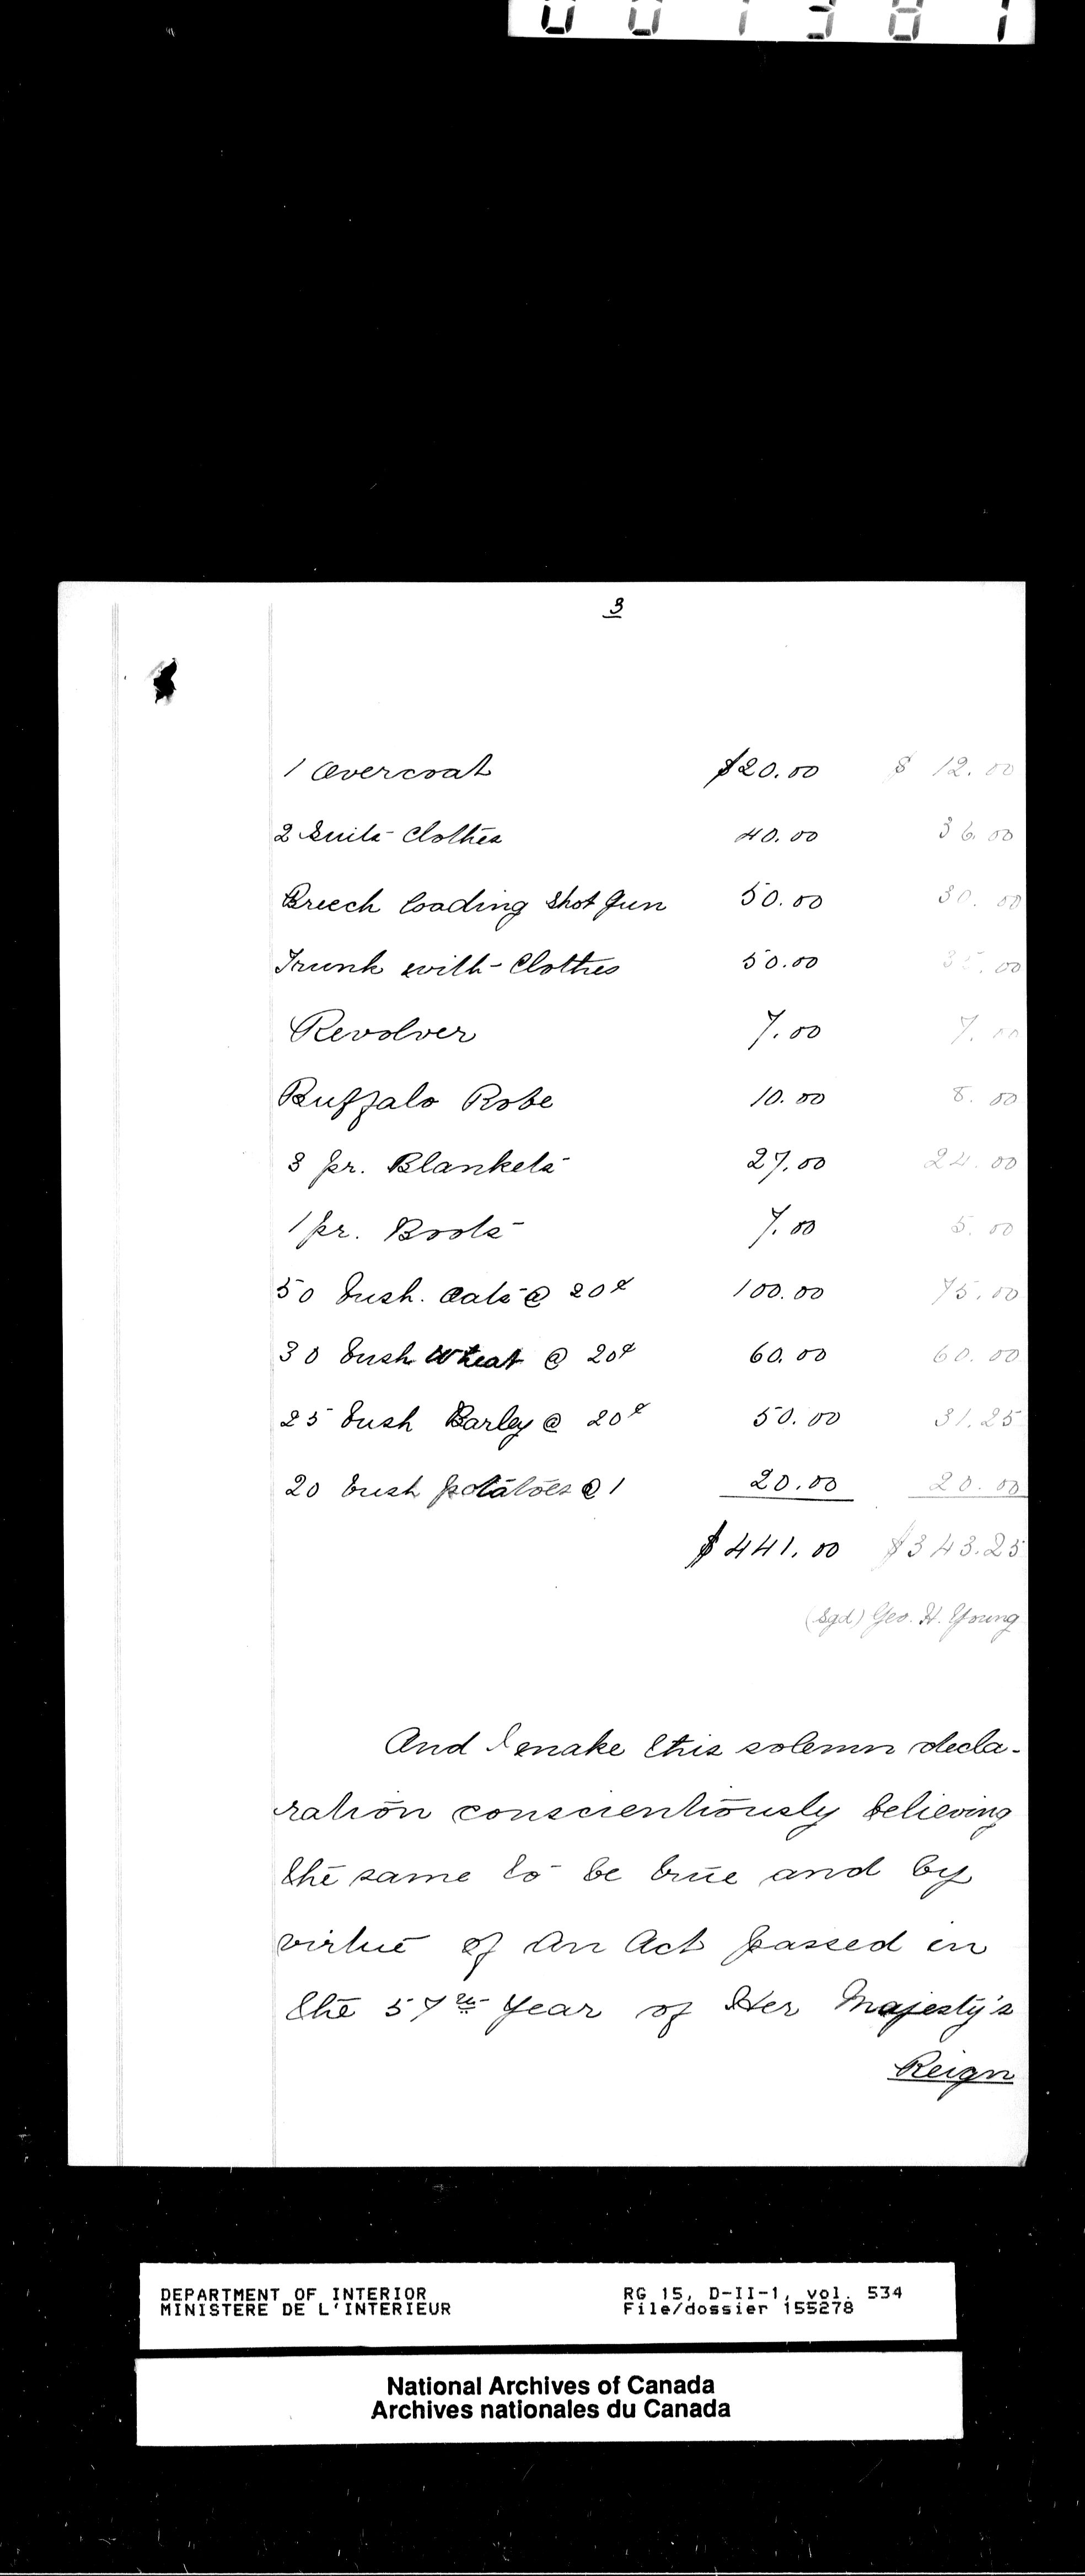 001381
3
1 Overcoat $20.00 $ 12.00
2 Suits Clothes 40.00 36.00
Breech loading Shot Gun 50.00 30.00
Trunk with Clothes 50.00 35.00
Revolver 7.00 7.00
Buffalo Robe 10.00 8.00
3 pr. Blankets 27.00 24.00
1 pr. Boots 7.00 5.00
50 bush. Oats @ 20¢ 100.00 75.00
30 bush Wheat @ 20¢ 60.00 60.00
25 bush Barley @ 20¢ 50.00 31.25
20 bush potatoes @ 1 20.00 20.00
$441.00 $343.25
(Sgd) Geo. H. Young
And I make this solemn decla-
ration conscientiously believing
the same to be true and by
virtue of An Act passed in
the 57th Year of Her Majesty's
Reign
DEPARTMENT OF INTERIOR RG 15, D-II-1, vol. 534
MINISTERE DE L'INTERIEUR File/dossier 155278
National Archives of Canada
Archives nationales du Canada